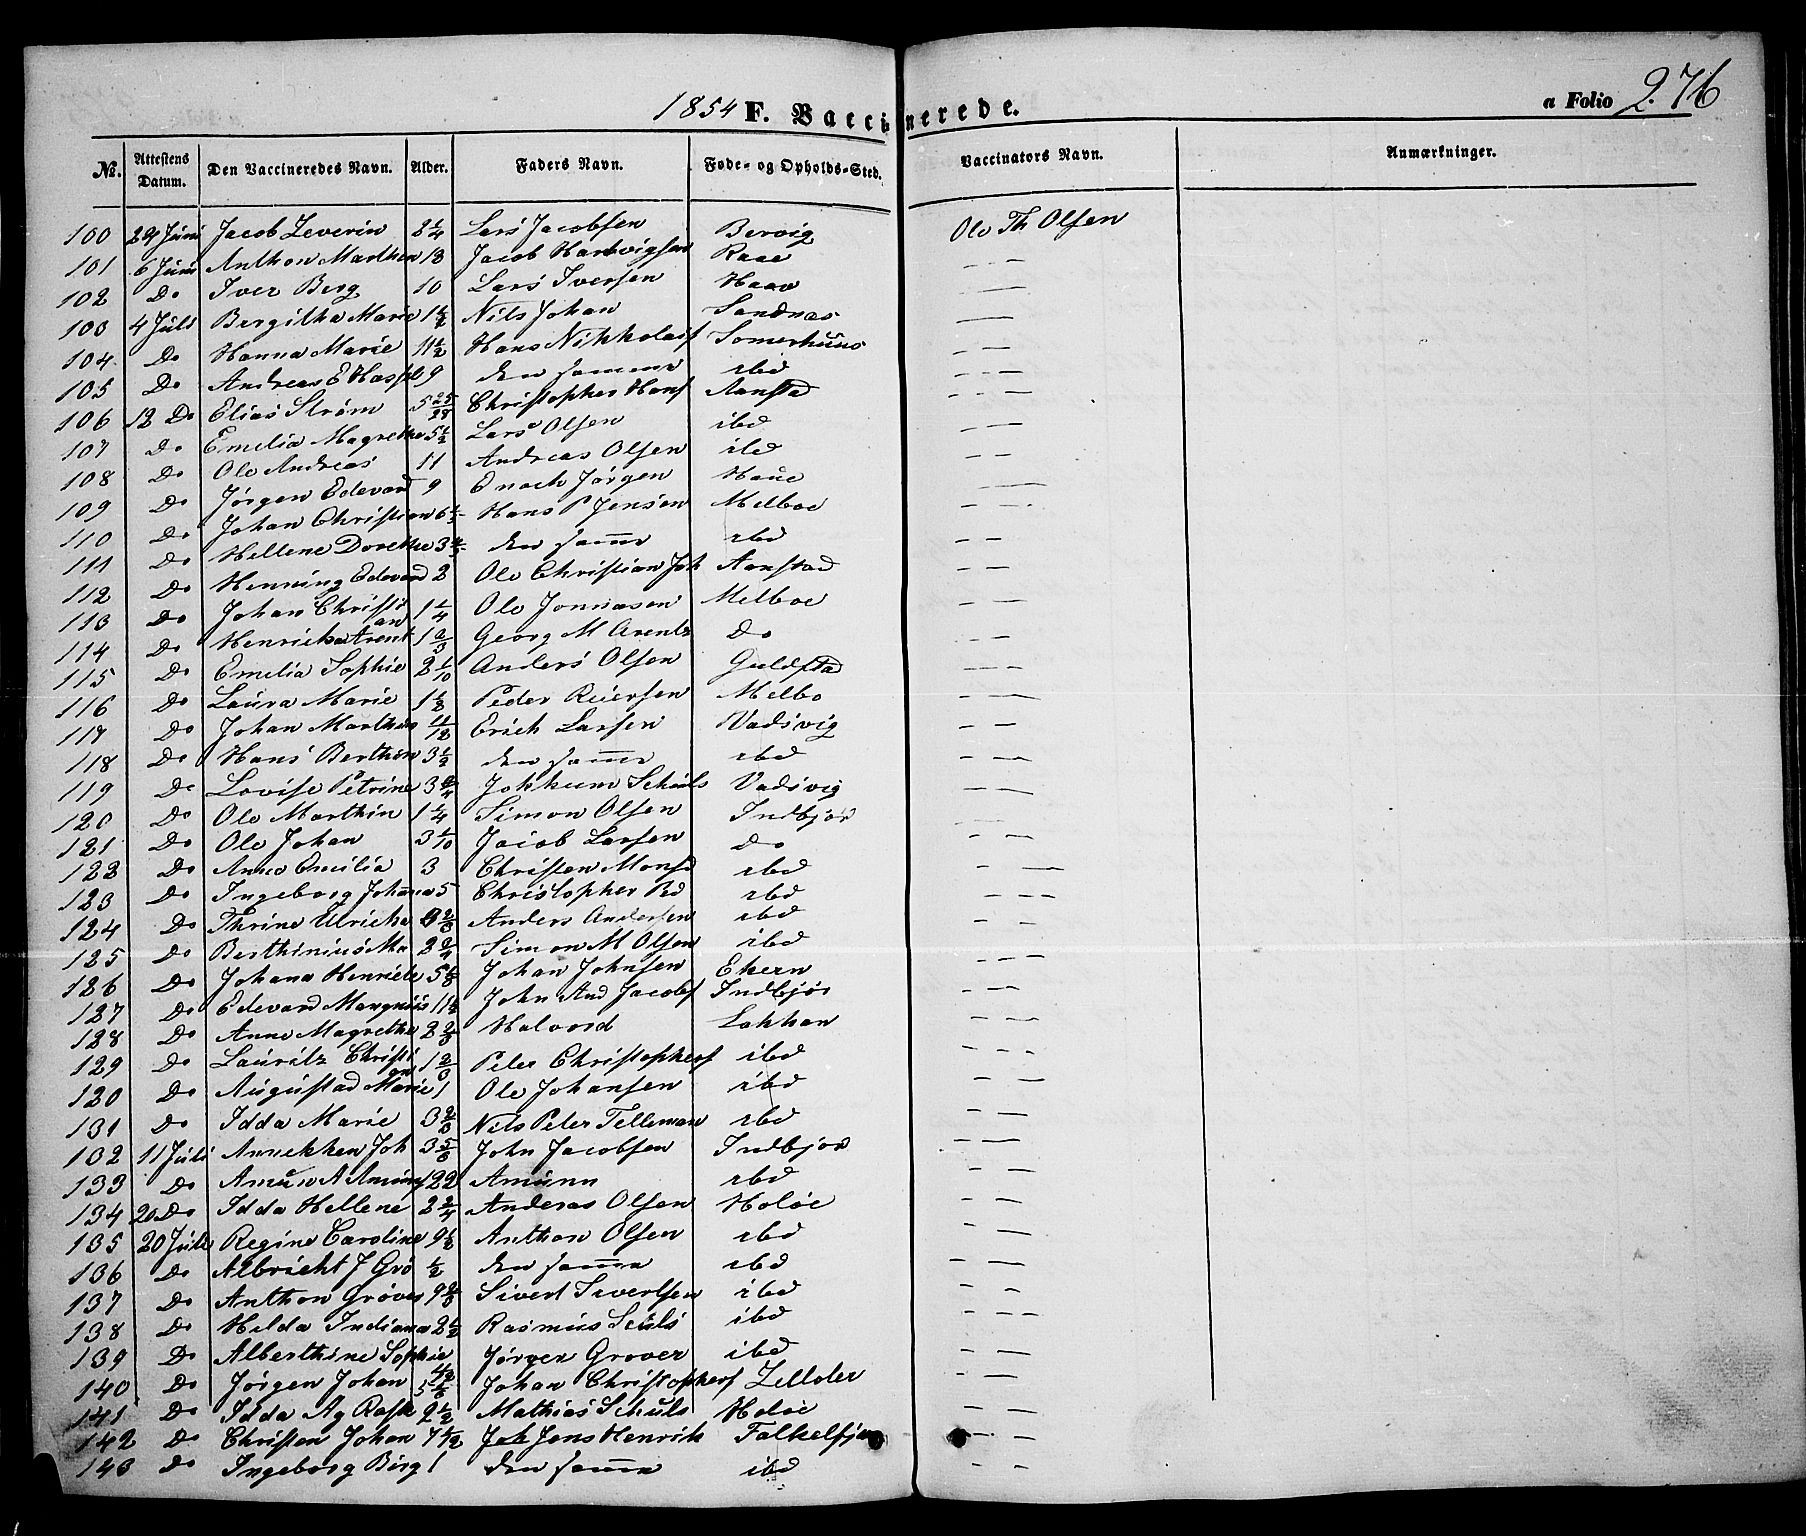 1854 F. Vaccinerede. a Folio 276
No. Attestens Datum. Den Vaccineredes Navn. Alder. Faders Navn. Føde- og Opholds-Sted. Vaccinators Navn. Anmærkninger.
100 24 Juni Jacob Zeverin 2 1/4 Lars Jacobsen Bervig Ole Th Olsen
101 6 Juni Anthon Marthen 13 Jacob Hartvigsen Raae — —
102 Do Iver Berg 10 Lars Iversen —
103 4 Juli Bergitha Marie 1 1/2 Nils Johan Sandnæs —
104 Do Hanna Marie 11 1/2 Hans Nikholaif Somerhuus — —
105 Do Andreas E Hasfl 9 den samme ibd — —
106 12 Do Elias Strøm 5 25/28 Christopher Hans Aanstad — —
107 Do Emelia Magrethe 5 1/2 Lars Olsen ibd — —
108 Do Ole Andreas 11 Andreas Olsen ibd — —
109 Do Jørgen Edevard 9 Enoch Jørgen Haue — —
110 Do Johan Christian 6 Hans P Jensen Melboe — —
111 Do Hellene Dorethe 3 den samme ibd — —
112 Do Henning Edevard 2 Ole Christian Joh Aanstad — —
113 Do Johan Christian 1 1/4 Ole Jonnasen Melboe — —
114 Do Henricha Arent 1 2/3 Georg M Arentz Do — —
115 Do Emelia Sophie 2 1/10 Anders Olsen Guldsta — —
116 Do Laura Marie 1 1/2 Peder Reiersen Melbo — —
117 Do Johan Marthin 11/12 Erich Larsen Vadsvig — —
118 Do Hans Berthin 3 1/2 den samme ibd — —
119 Do Lovise Petrine 3 Johkum Schuls Vadsvig — —
120 Do Ole Marthin 1 1/4 Simon Olsen Indbjor — —
121 Do Ole Johan 3 1/10 Jacob Larsen Do — —
122 Do Anna Emilia 3 Christen Monsd ibd — —
123 Do Ingeborg Johanna 5 Christopher Pd ibd — — —
124 Do Thrine Ulricha Anders Andersen ibd — —
125 Do Berthinius Ma 2 2/4 Simon M Olsen ibd — — —
126 Do Johana Henriete 5 Johan Johnsen Ekern — —
127 Do Edevard Mangniis 11 1/2 John And Jacobs Indbjor — — —
128 Do Anne Magrethe 2 2/3 Halvord Lakhan — — —
129 Do Lauritz Christian 1 2/3 Peter Christophers ibd — — —
120 Do Augustad Marie 1 Ole Johansen ibd — —
131 Do Idda Marie 3 2/3 Nils Peter Telleman ibd — —
132 11 Juli Annekhen Joh 3 5/6 John Jacobsen Indbjor — —
133 Do Amun A Amun 22 Amunn ibd — —
134 20 Do Idda Hellene 2 2/4 Anderas Olsen Holoe — —
135 20 Juli Regine Caroline 9 1/2 Anthon Olsen ibd — —
136 Do Albricht J Gro 1/2 den samme ibd — —
137 Do Anthon Grover 9 2/3 Sivert Sivertsen ibd — —
138 Do Hilda Indiana 2 1/2 Rasmus Schuls ibd — — —
139 Do Alberthine Sophie Jørgen Grover ibd — —
140 Do Jørgen Johan 5 Johan Christophers — —
141 Do Idda Ag Rask 2 1/2 Mathias Schuls Holoe — —
142 Do Christen Johan 7 Joh Jens Henrik Falkelfjor — —
143 Do Ingeborg Birg 1 den samme ibd — —